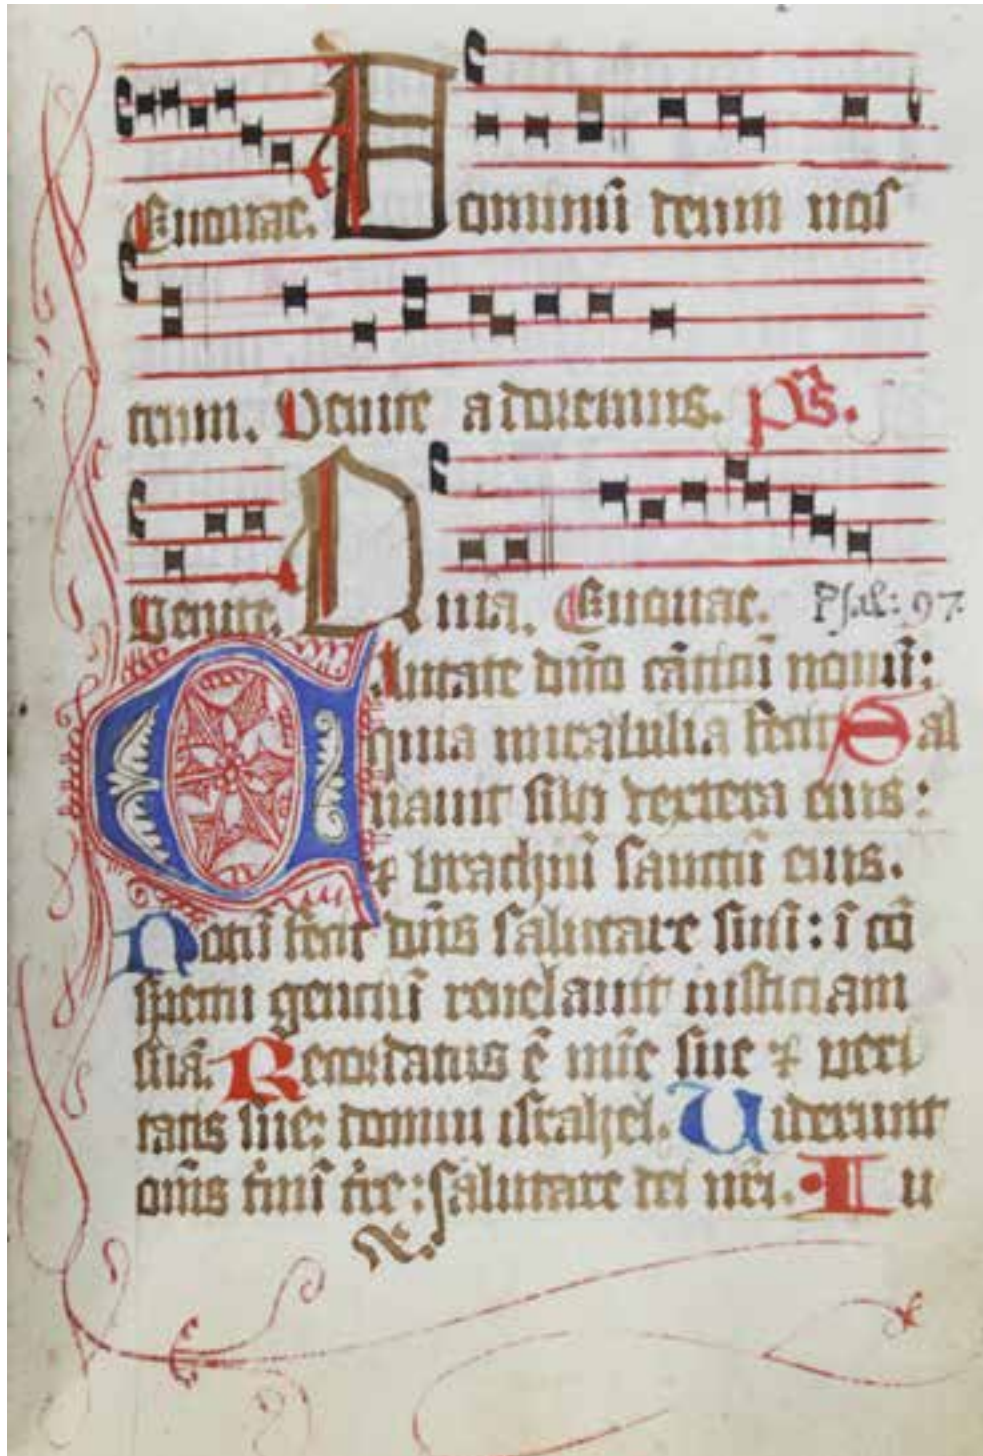 Euouae. Dominū deum nos
trum. Venite adoremus. Ps.
Venite. Ant̄ia. Euouae. Psal: 97.
Cantate dn̄o cāticū nouū:
quia mirabilia fecit Sal
uauit sibi dextera eius:
et brachiū sanctū eius.
Notū fecit dn̄s salutare suū: ī cō
spectu genciū reuelauit iusticiam
suā. Recordatus ē mīe sue et ueri
tatis sue: domui israhel. Uiderunt
om̄s t̄mī t̄re: salutare dei nr̄i. Iu